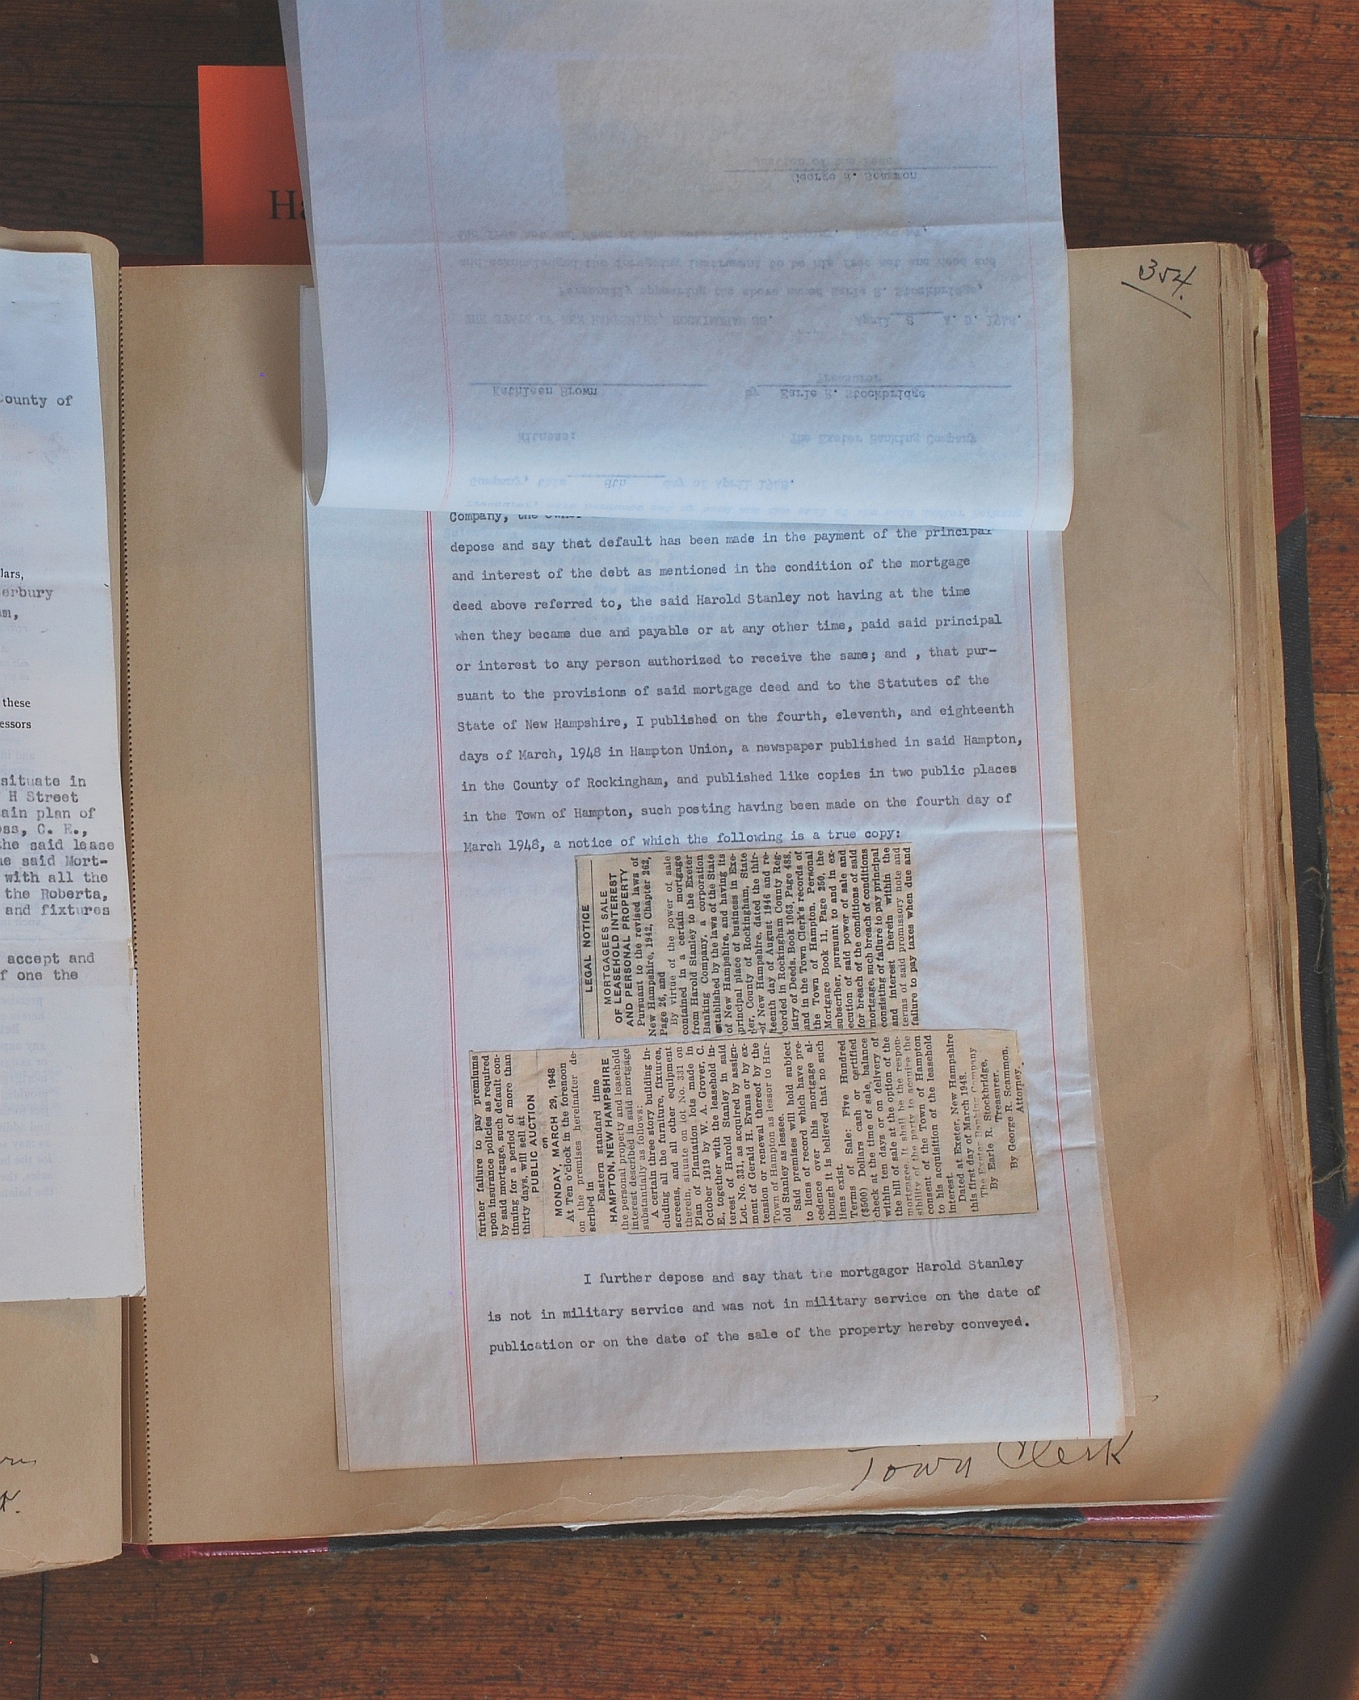 354.
Ha
Company, the owner
depose and say that default has been made in the payment of the principal
and interest of the debt as mentioned in the condition of the mortgage
deed above referred to, the said Harold Stanley not having at the time
when they became due and payable or at any other time, paid said principal
or interest to any person authorized to receive the same; and , that pur-
suant to the provisions of said mortgage deed and to the Statutes of the
State of New Hampshire, I published on the fourth, eleventh, and eighteenth
days of March, 1948 in Hampton Union, a newspaper published in said Hampton,
in the County of Rockingham, and published like copies in two public places
in the Town of Hampton, such posting having been made on the fourth day of
March 1948, a notice of which the following is a true copy:
LEGAL NOTICE
MORTGAGEES SALE
OF LEASEHOLD INTEREST
AND PERSONAL PROPERTY
Pursuant to the revised laws of
New Hampshire, 1942, Chapter 262,
Page 26, and
By virtue of the power of sale
contained in a certain mortgage
from Harold Stanley to the Exeter
Banking Company, a corporation
established by the laws of the State
of New Hampshire, and having its
principal place of business in Exe-
ter, County of Rockingham, State
of New Hampshire, dated the thir-
teenth day of August 1946 and re-
corded in Rockingham County Reg-
istry of Deeds, Book 1063, Page 488,
and in the Town Clerk's records of
the Town of Hampton, Personal
Mortgage Book 11, Page 250, the
subscriber, pursuant to and in ex-
ecution of said power of sale and
for breach of the conditions of said
mortgage, such breach of conditions
consisting of failure to pay principal
and interest therein within the
terms of said promissory note and
failure to pay taxes when due and
further failure to pay premiums
upon insurance policies as required
by said mortgage, such default con-
tinuing for a period of more than
thirty days, will sell at
PUBLIC AUCTION
on
MONDAY, MARCH 29, 1948
At Ten o'clock in the forenoon
on the premises hereinafter de-
scribed in
Eastern standard time
HAMPTON, NEW HAMPSHIRE
the personal property and leasehold
interest described in said mortgage
substantially as follows:
A certain three story building in-
cluding all the furniture, fixtures,
screens, and all other equipment
therein, situate on lot No. 331 on
Plan of Plantation lots made in
October 1919 by W. A. Grover, C.
E., together with the leasehold in-
terest of Harold Stanley in said
Lot. No. 331, as acquired by assign-
ment of Gerald H. Evans or by ex-
tension or renewal thereof by the
Town of Hampton as lessor to Har-
old Stanley as lessee.
Said premises will hold subject
to liens of record which have pre-
cedence over this mortgage al-
though it is believed that no such
liens exist.
Terms of Sale: Five Hundred
($500) Dollars cash or certified
check at the time of sale, balance
within ten days or on delivery of
the bill of sale at the option of the
mortgagee. It shall be the respon-
sibility of the party to acquire the
consent of the Town of Hampton
to his acquisition of the leasehold
interest.
Dated at Exeter, New Hampshire
this first day of March 1948.
The Exeter Banking Company
By Earle R. Stockbridge,
Treasurer.
By George R. Scammon,
Attorney.
I further depose and say that the mortgagor Harold Stanley
is not in military service and was not in military service on the date of
publication or on the date of the sale of the property hereby conveyed.
Town Clerk
County of
lars,
erbury
these
essors
situate in
H Street
ain plan of
oss, C. E.,
the said lease
he said Mort-
with all the
the Roberta,
and fixtures
accept and
f one the